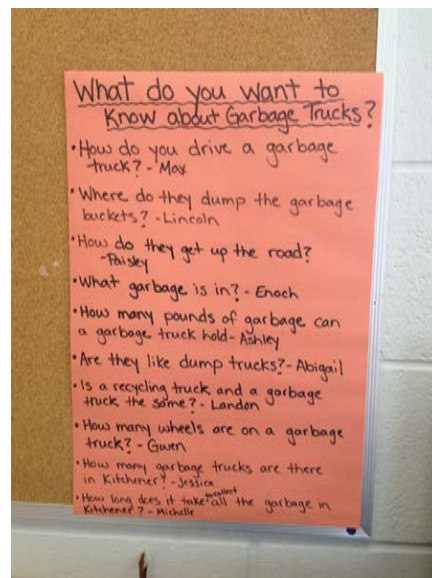 What do you want to
Know about Garbage Trucks?
• How do you drive a garbage
truck? - Max
• Where do they dump the garbage
buckets? - Lincoln
• How do they get up the road?
- Paisley
• What garbage is in? - Enoch
• How many pounds of garbage can
a garbage truck hold - Ashley
• Are they like dump trucks? - Abigail
• Is a recycling truck and a garbage
truck the same? - Landon
• How many wheels are on a garbage
truck? - Gwen
• How many garbage trucks are there
in Kitchener? - Jessica
• How long does it take to collect all the garbage in
Kitchener? - Michelle